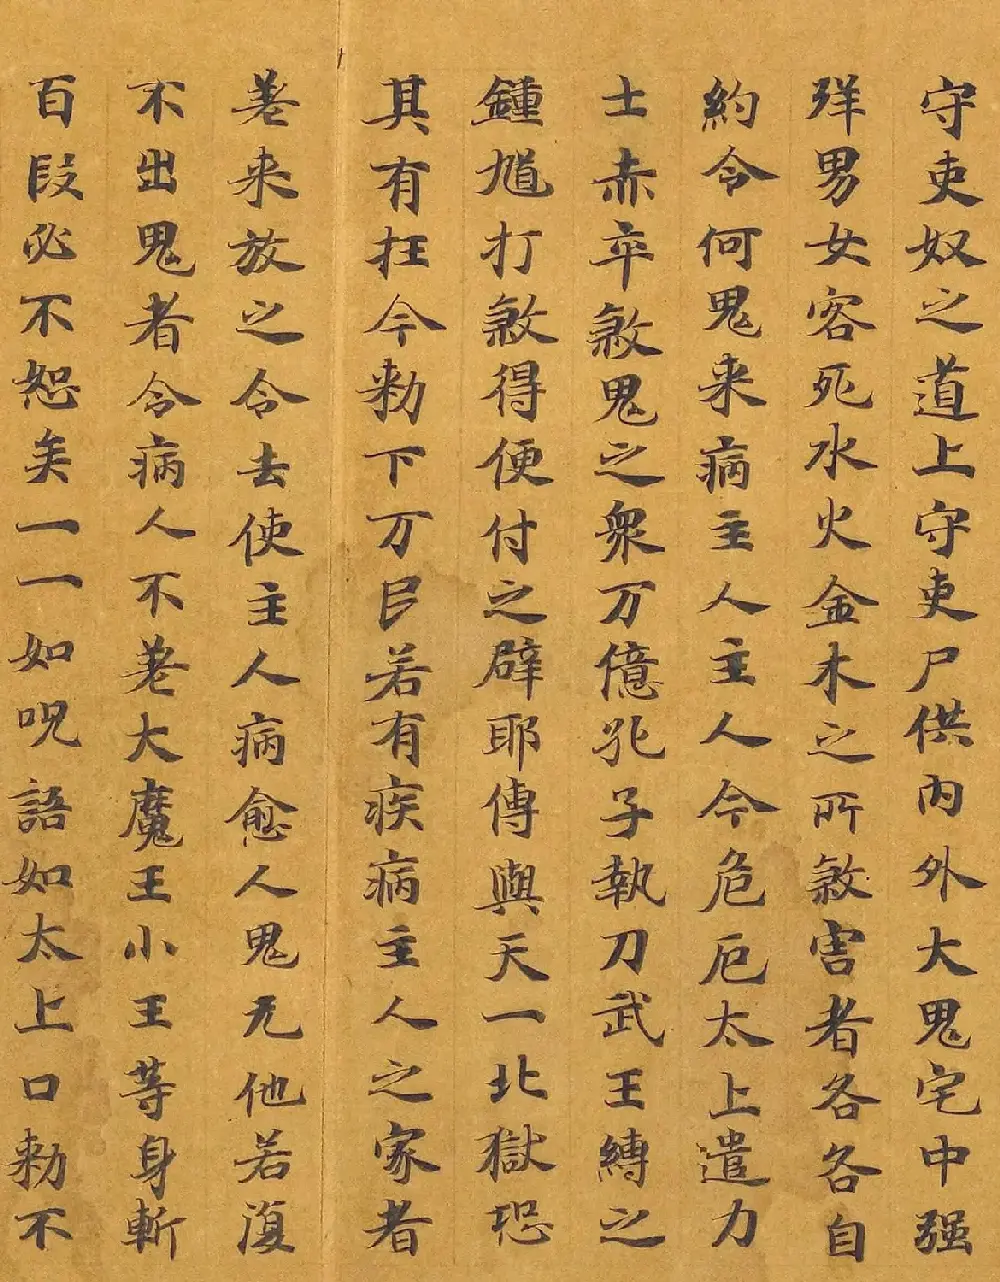 守吏奴之道上守吏尸供内外大鬼宅中强
殃男女客死水火金木之所煞害者各各自
約令何鬼来病主人主人今危厄太上遣力
士赤卒煞鬼之衆万億孔子執刀武王縛之
鍾馗打煞得便付之辟耶傳與天一北獄恐
其有枉今勑下万民若有疾病主人之家者
差来放之令去使主人病愈人鬼无他若復
不出鬼者令病人不差大魔王小王等身斬
百段必不恕矣一一如呪語如太上口勑不